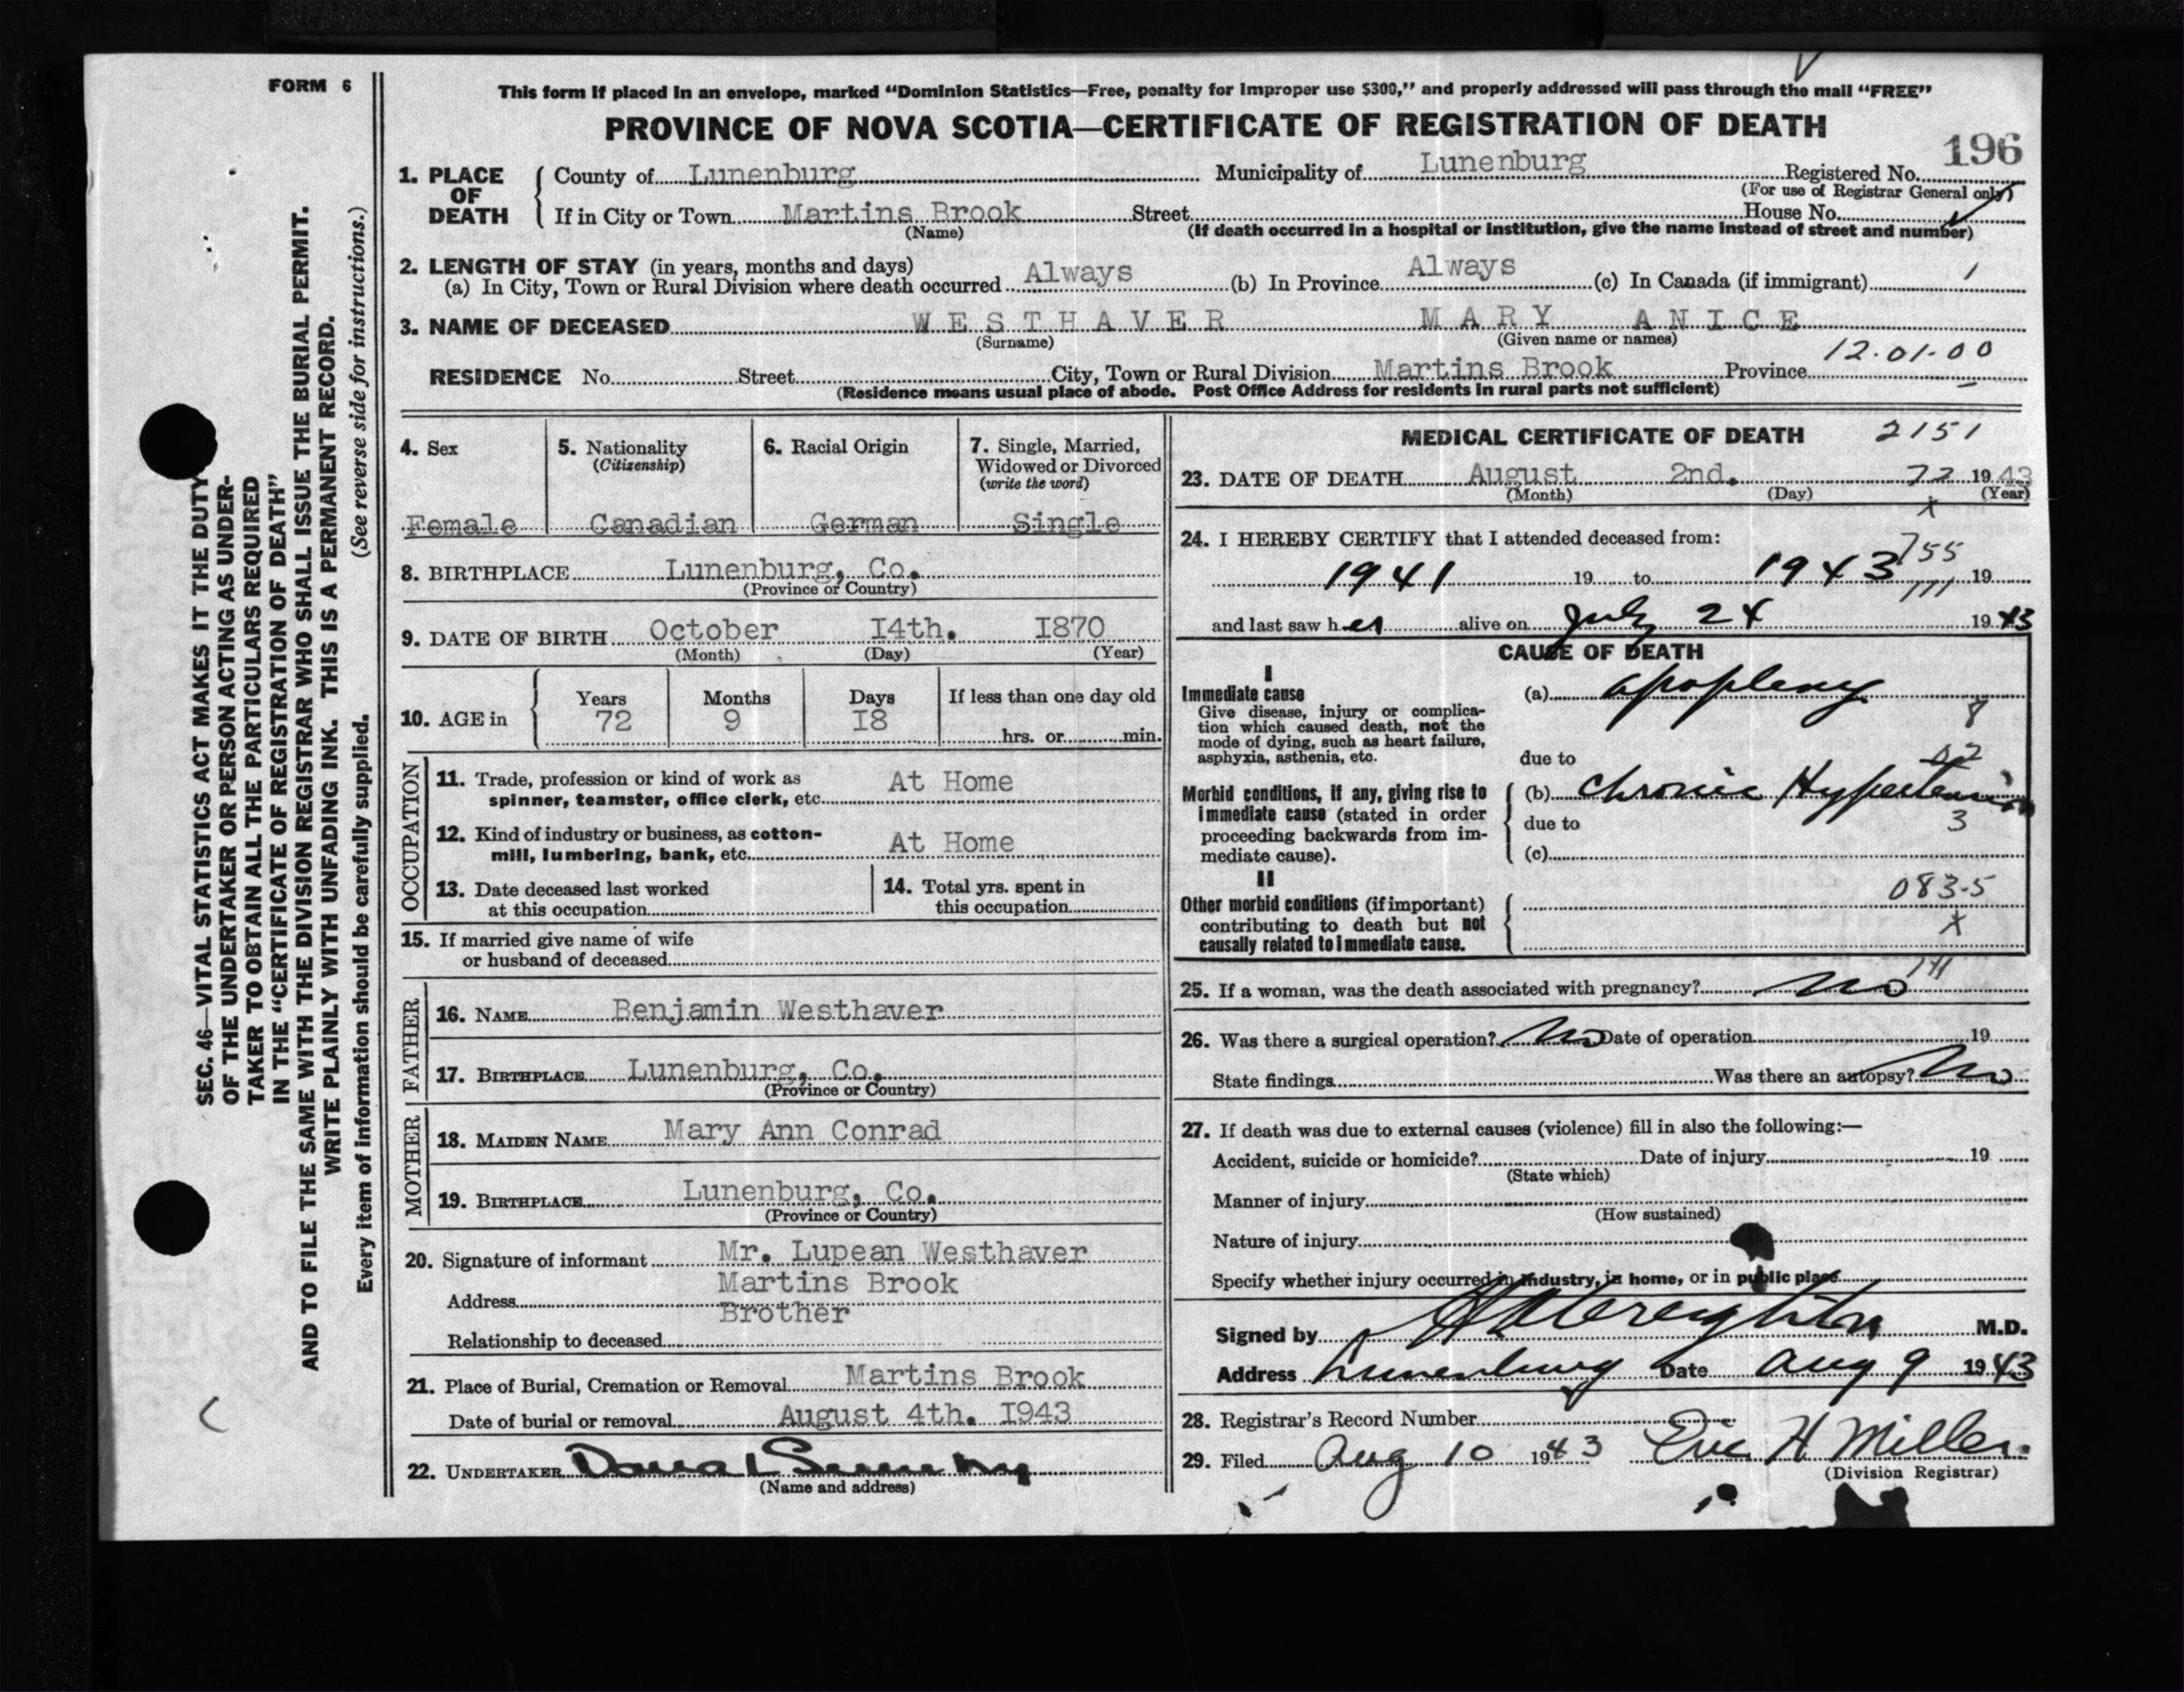 FORM 6
This form if placed in an envelope, marked “Dominion Statistics—Free, penalty for improper use $300,” and properly addressed will pass through the mail “FREE”
PROVINCE OF NOVA SCOTIA—CERTIFICATE OF REGISTRATION OF DEATH
196
1. PLACE OF DEATH
County of Lunenburg Municipality of Lunenburg Registered No.
(For use of Registrar General only)
If in City or Town Martins Brook Street House No.
(Name) (If death occurred in a hospital or institution, give the name instead of street and number)
2. LENGTH OF STAY (in years, months and days)
(a) In City, Town or Rural Division where death occurred Always (b) In Province Always (c) In Canada (if immigrant) 1
3. NAME OF DECEASED WESTHAVER MARY ANICE
(Surname) (Given name or names)
12.01.00
RESIDENCE No. Street City, Town or Rural Division Martins Brook Province
(Residence means usual place of abode. Post Office Address for residents in rural parts not sufficient)
4. Sex
Female
5. Nationality
(Citizenship)
Canadian
6. Racial Origin
German
7. Single, Married,
Widowed or Divorced
(write the word)
Single
8. BIRTHPLACE Lunenburg, Co.
(Province or Country)
9. DATE OF BIRTH October I4th. I870
(Month) (Day) (Year)
10. AGE in
Years Months Days If less than one day old
72 9 I8
hrs. or min.
OCCUPATION
11. Trade, profession or kind of work as
spinner, teamster, office clerk, etc. At Home
12. Kind of industry or business, as cotton-
mill, lumbering, bank, etc. At Home
13. Date deceased last worked
at this occupation
14. Total yrs. spent in
this occupation
15. If married give name of wife
or husband of deceased
FATHER
16. NAME Benjamin Westhaver
17. BIRTHPLACE Lunenburg, Co.
(Province or Country)
MOTHER
18. MAIDEN NAME Mary Ann Conrad
19. BIRTHPLACE Lunenburg, Co.
(Province or Country)
20. Signature of informant Mr. Lupean Westhaver
Address Martins Brook
Relationship to deceased Brother
21. Place of Burial, Cremation or Removal Martins Brook
Date of burial or removal August 4th. I943
22. UNDERTAKER
(Name and address)
MEDICAL CERTIFICATE OF DEATH 2151
23. DATE OF DEATH August 2nd. 72 1943
(Month) (Day) (Year)
x
24. I HEREBY CERTIFY that I attended deceased from:
755
1941 19 to 1943 19
111
and last saw her alive on July 24 1943
CAUSE OF DEATH
I
Immediate cause
Give disease, injury or complica-
tion which caused death, not the
mode of dying, such as heart failure,
asphyxia, asthenia, etc.
(a) apoplexy
8
due to
02
Morbid conditions, if any, giving rise to
immediate cause (stated in order
proceeding backwards from im-
mediate cause).
(b) Chronic Hypertension
due to
3
(c)
II
Other morbid conditions (if important)
contributing to death but not
causally related to immediate cause.
083.5
X
25. If a woman, was the death associated with pregnancy? no
26. Was there a surgical operation? No Date of operation 19
State findings Was there an autopsy? No
27. If death was due to external causes (violence) fill in also the following:—
Accident, suicide or homicide? Date of injury 19
(State which)
Manner of injury
(How sustained)
Nature of injury
Specify whether injury occurred in industry, in home, or in public place
Signed by Creighton M.D.
Address Lunenburg Date Aug 9 1943
28. Registrar's Record Number
29. Filed Aug 10 1943 Eric H Miller
(Division Registrar)
SEC. 46—VITAL STATISTICS ACT MAKES IT THE DUTY
OF THE UNDERTAKER OR PERSON ACTING AS UNDER-
TAKER TO OBTAIN ALL THE PARTICULARS REQUIRED
IN THE “CERTIFICATE OF REGISTRATION OF DEATH”
AND TO FILE THE SAME WITH THE DIVISION REGISTRAR WHO SHALL ISSUE THE BURIAL PERMIT.
WRITE PLAINLY WITH UNFADING INK. THIS IS A PERMANENT RECORD.
Every item of information should be carefully supplied. (See reverse side for instructions.)